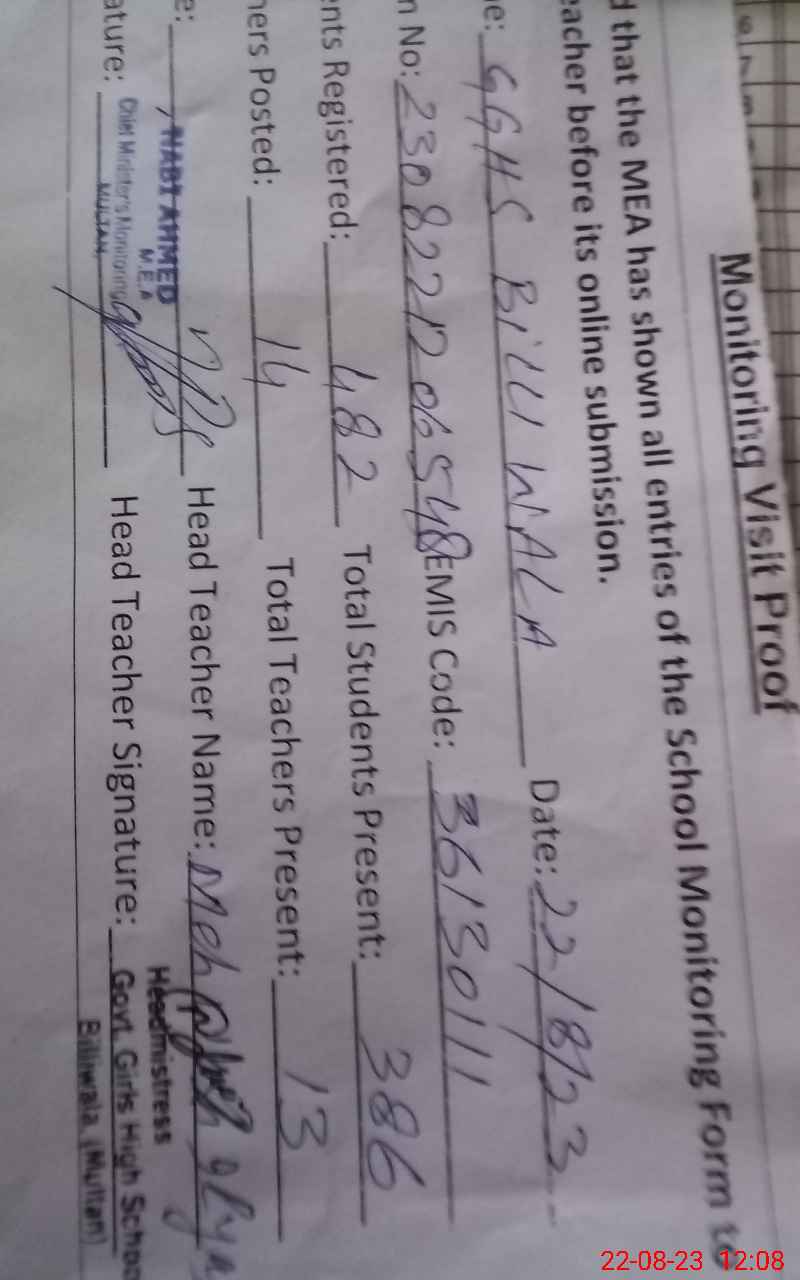 Monitoring Visit Proof
d that the MEA has shown all entries of the School Monitoring Form to
eacher before its online submission.
e: GGHS BILLI WALA Date: 22/8/23
n No: 2308221206548 EMIS Code: 36130111
ents Registered: 482 Total Students Present: 386
hers Posted: 14 Total Teachers Present: 13
e: NABI AHMED Head Teacher Name:
M.E.A
Headmistress
ature: Chief Minister's Monitoring Head Teacher Signature: Govt. Girls High Schoo
MULTAN
Billiwala (Multan)
22-08-23 12:08